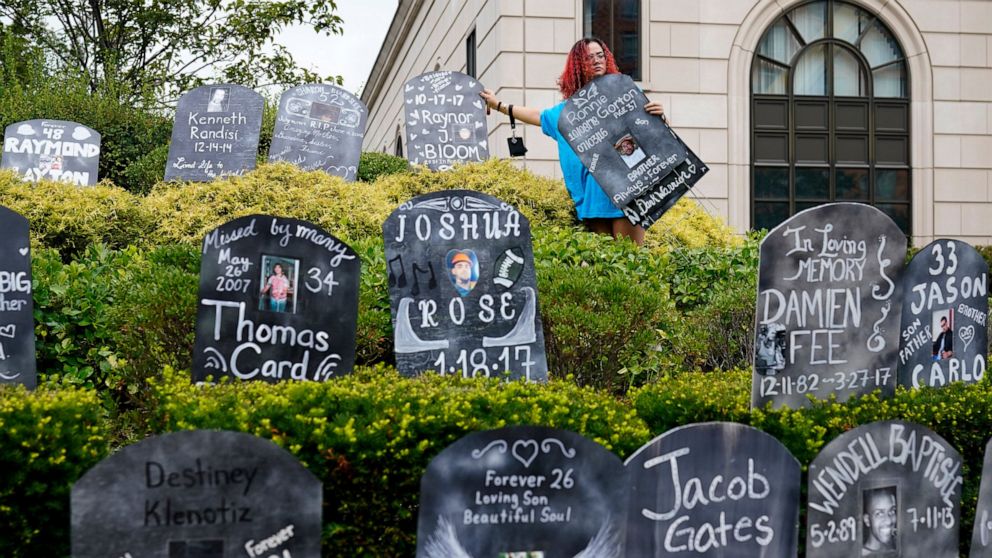 48
RAYMOND
LAYTON
Kenneth
Randisi
12-14-14
52
R.I.P
10-17-17
Raynor
J.
BLOOM
Ronnie Gorton
AGE 37
BROTHER
Always + Forever
BIG
Missed by many
May
26
2007
34
Thomas
Card
JOSHUA
ROSE
1•18•17
In Loving
MEMORY
DAMIEN
FEE
12-11-82 ~ 3-27-17
33
JASON
SON
BROTHER
FATHER
CARLO
Destiney
Klenotiz
Forever
Forever 26
Loving Son
Beautiful Soul
Jacob
Gates
WENDELL BAPTISTE
5•2•89
7•11•13